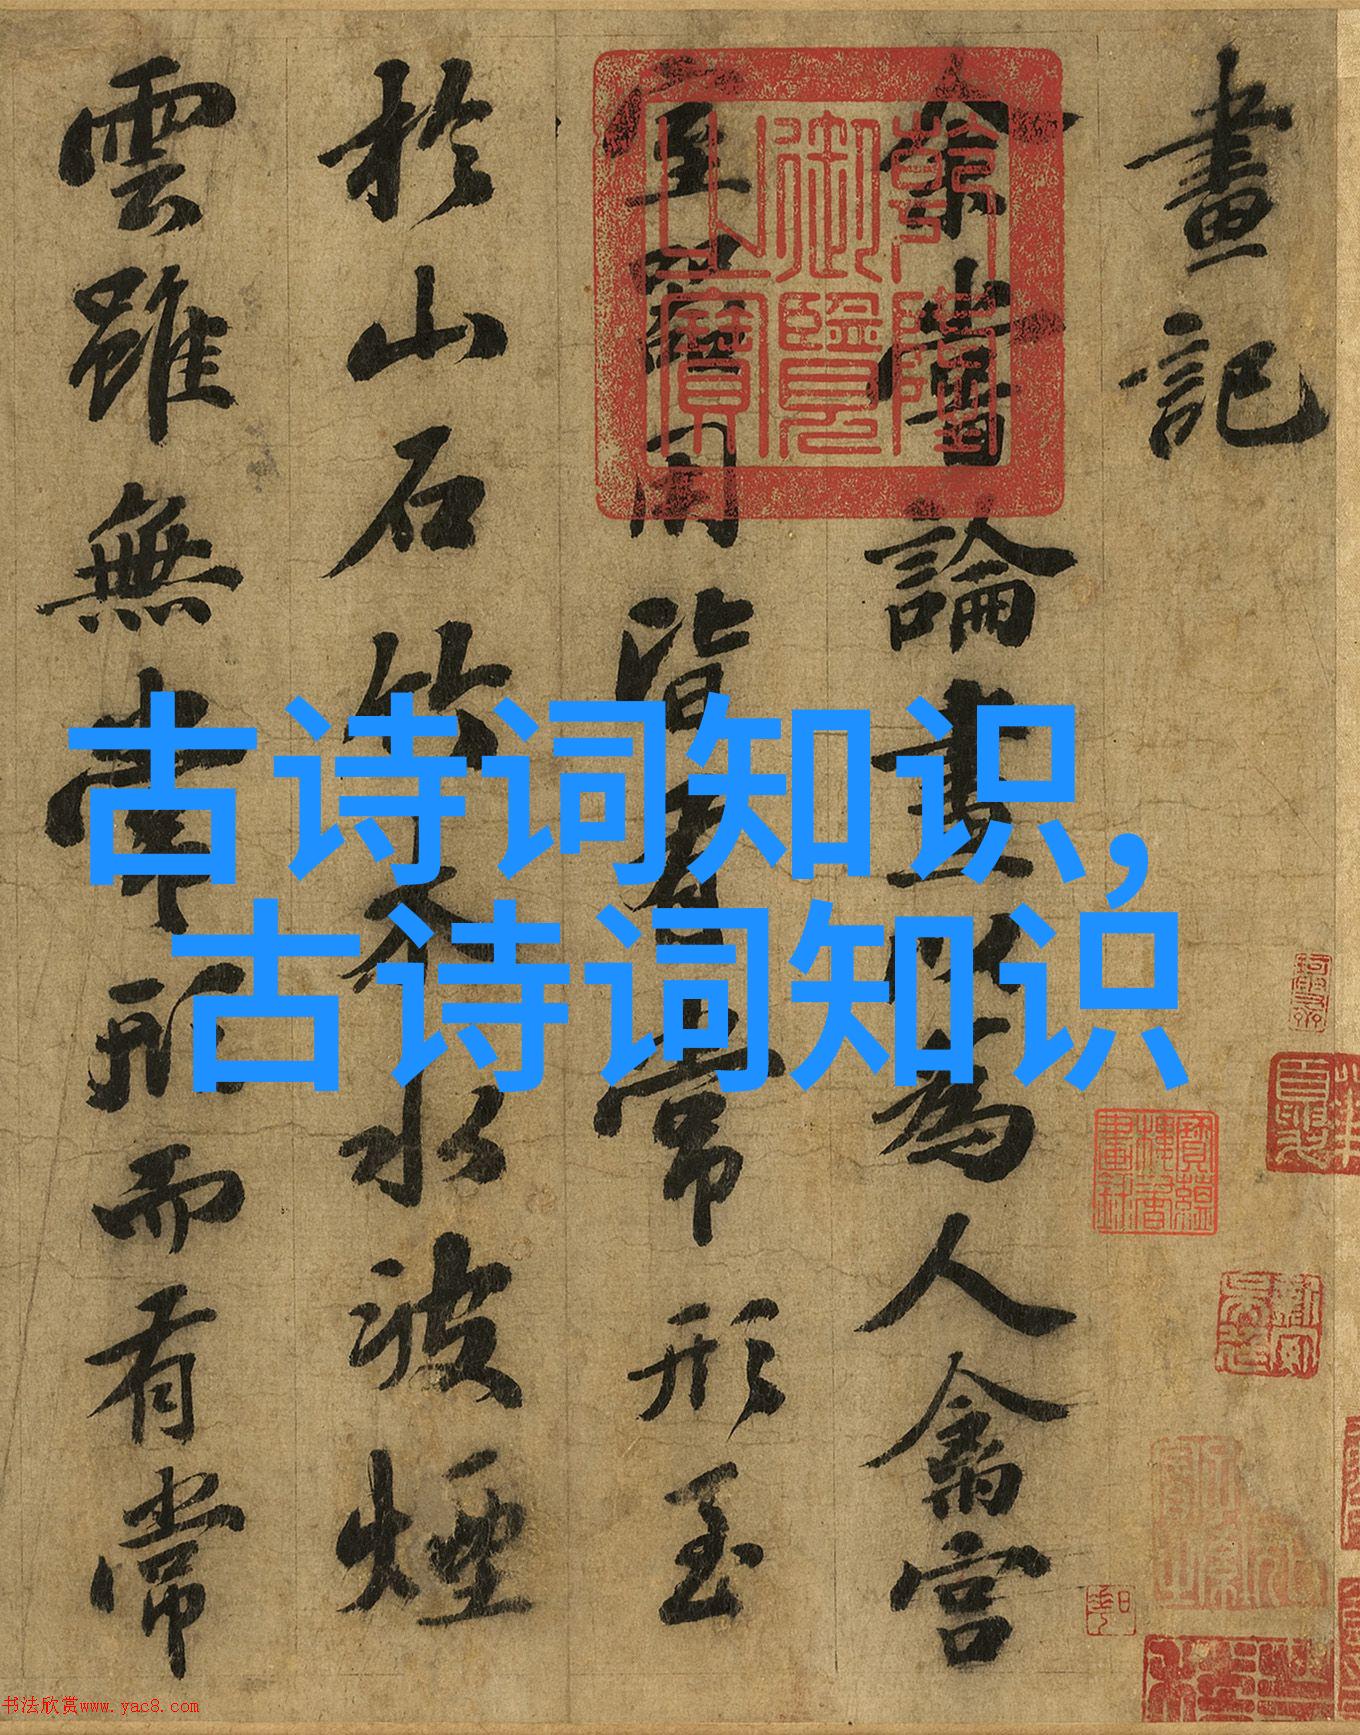 畫記
余嘗論畫以為人禽宮
室器用皆有常形至
於山石竹木水波煙
雲雖無常形而有常
乾隆
御覽
之寶
古诗词知识,
古诗词知识
书法欣赏www.yac8.com